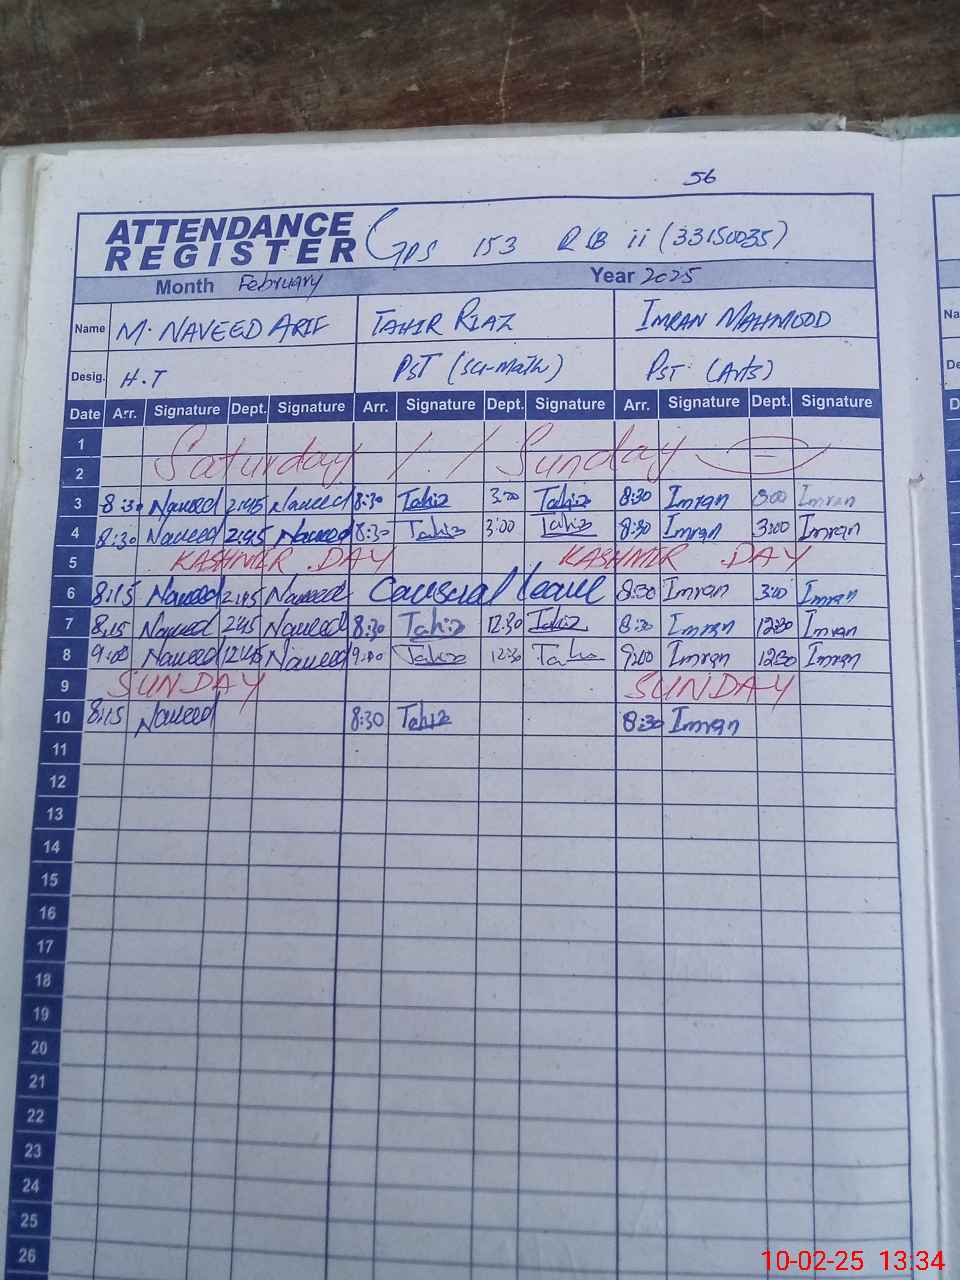 56
ATTENDANCE REGISTER GPS 153 RB ii (33150035)
Month February Year 2025
Name M. NAVEED ARIF TAHIR RIAZ IMRAN MAHMOOD Na
Desig. H.T PST (Sci-Math) PST (Arts) De
Date Arr. Signature Dept. Signature Arr. Signature Dept. Signature Arr. Signature Dept. Signature D
1
2 Saturday / / Sunday
3 8:30 Naveed 2:45 Naveed 8:30 Tahir 3:00 Tahir 8:30 Imran 3:00 Imran
4 8:30 Naveed 2:45 Naveed 8:30 Tahir 3:00 Tahir 8:30 Imran 3:00 Imran
5 KASHMIR DAY KASHMIR DAY
6 8:15 Naveed 2:45 Naveed Causual leave 8:30 Imran 3:00 Imran
7 8:15 Naveed 2:45 Naveed 8:30 Tahir 12:30 Tahir 8:30 Imran 12:30 Imran
8 9:00 Naveed 12:45 Naveed 9:00 Tahir 12:30 Tahir 9:00 Imran 12:30 Imran
9 SUNDAY SUNDAY
10 8:15 Naveed 8:30 Tahir 8:30 Imran
11
12
13
14
15
16
17
18
19
20
21
22
23
24
25
26
10-02-25 13:34